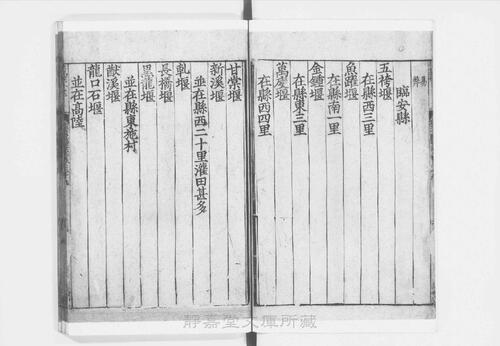 臨安縣
五袴堰
在縣西三里
魚躍堰
在縣南一里
金鍾堰
在縣東三里
萬歲堰
在縣西四里
甘棠堰
新溪堰
並在縣西二十里灌田甚多
亁堰
長橋堰
黑龍堰
並在縣東施村
猷溪堰
龍口石堰
並在高陸
靜嘉堂文庫所藏